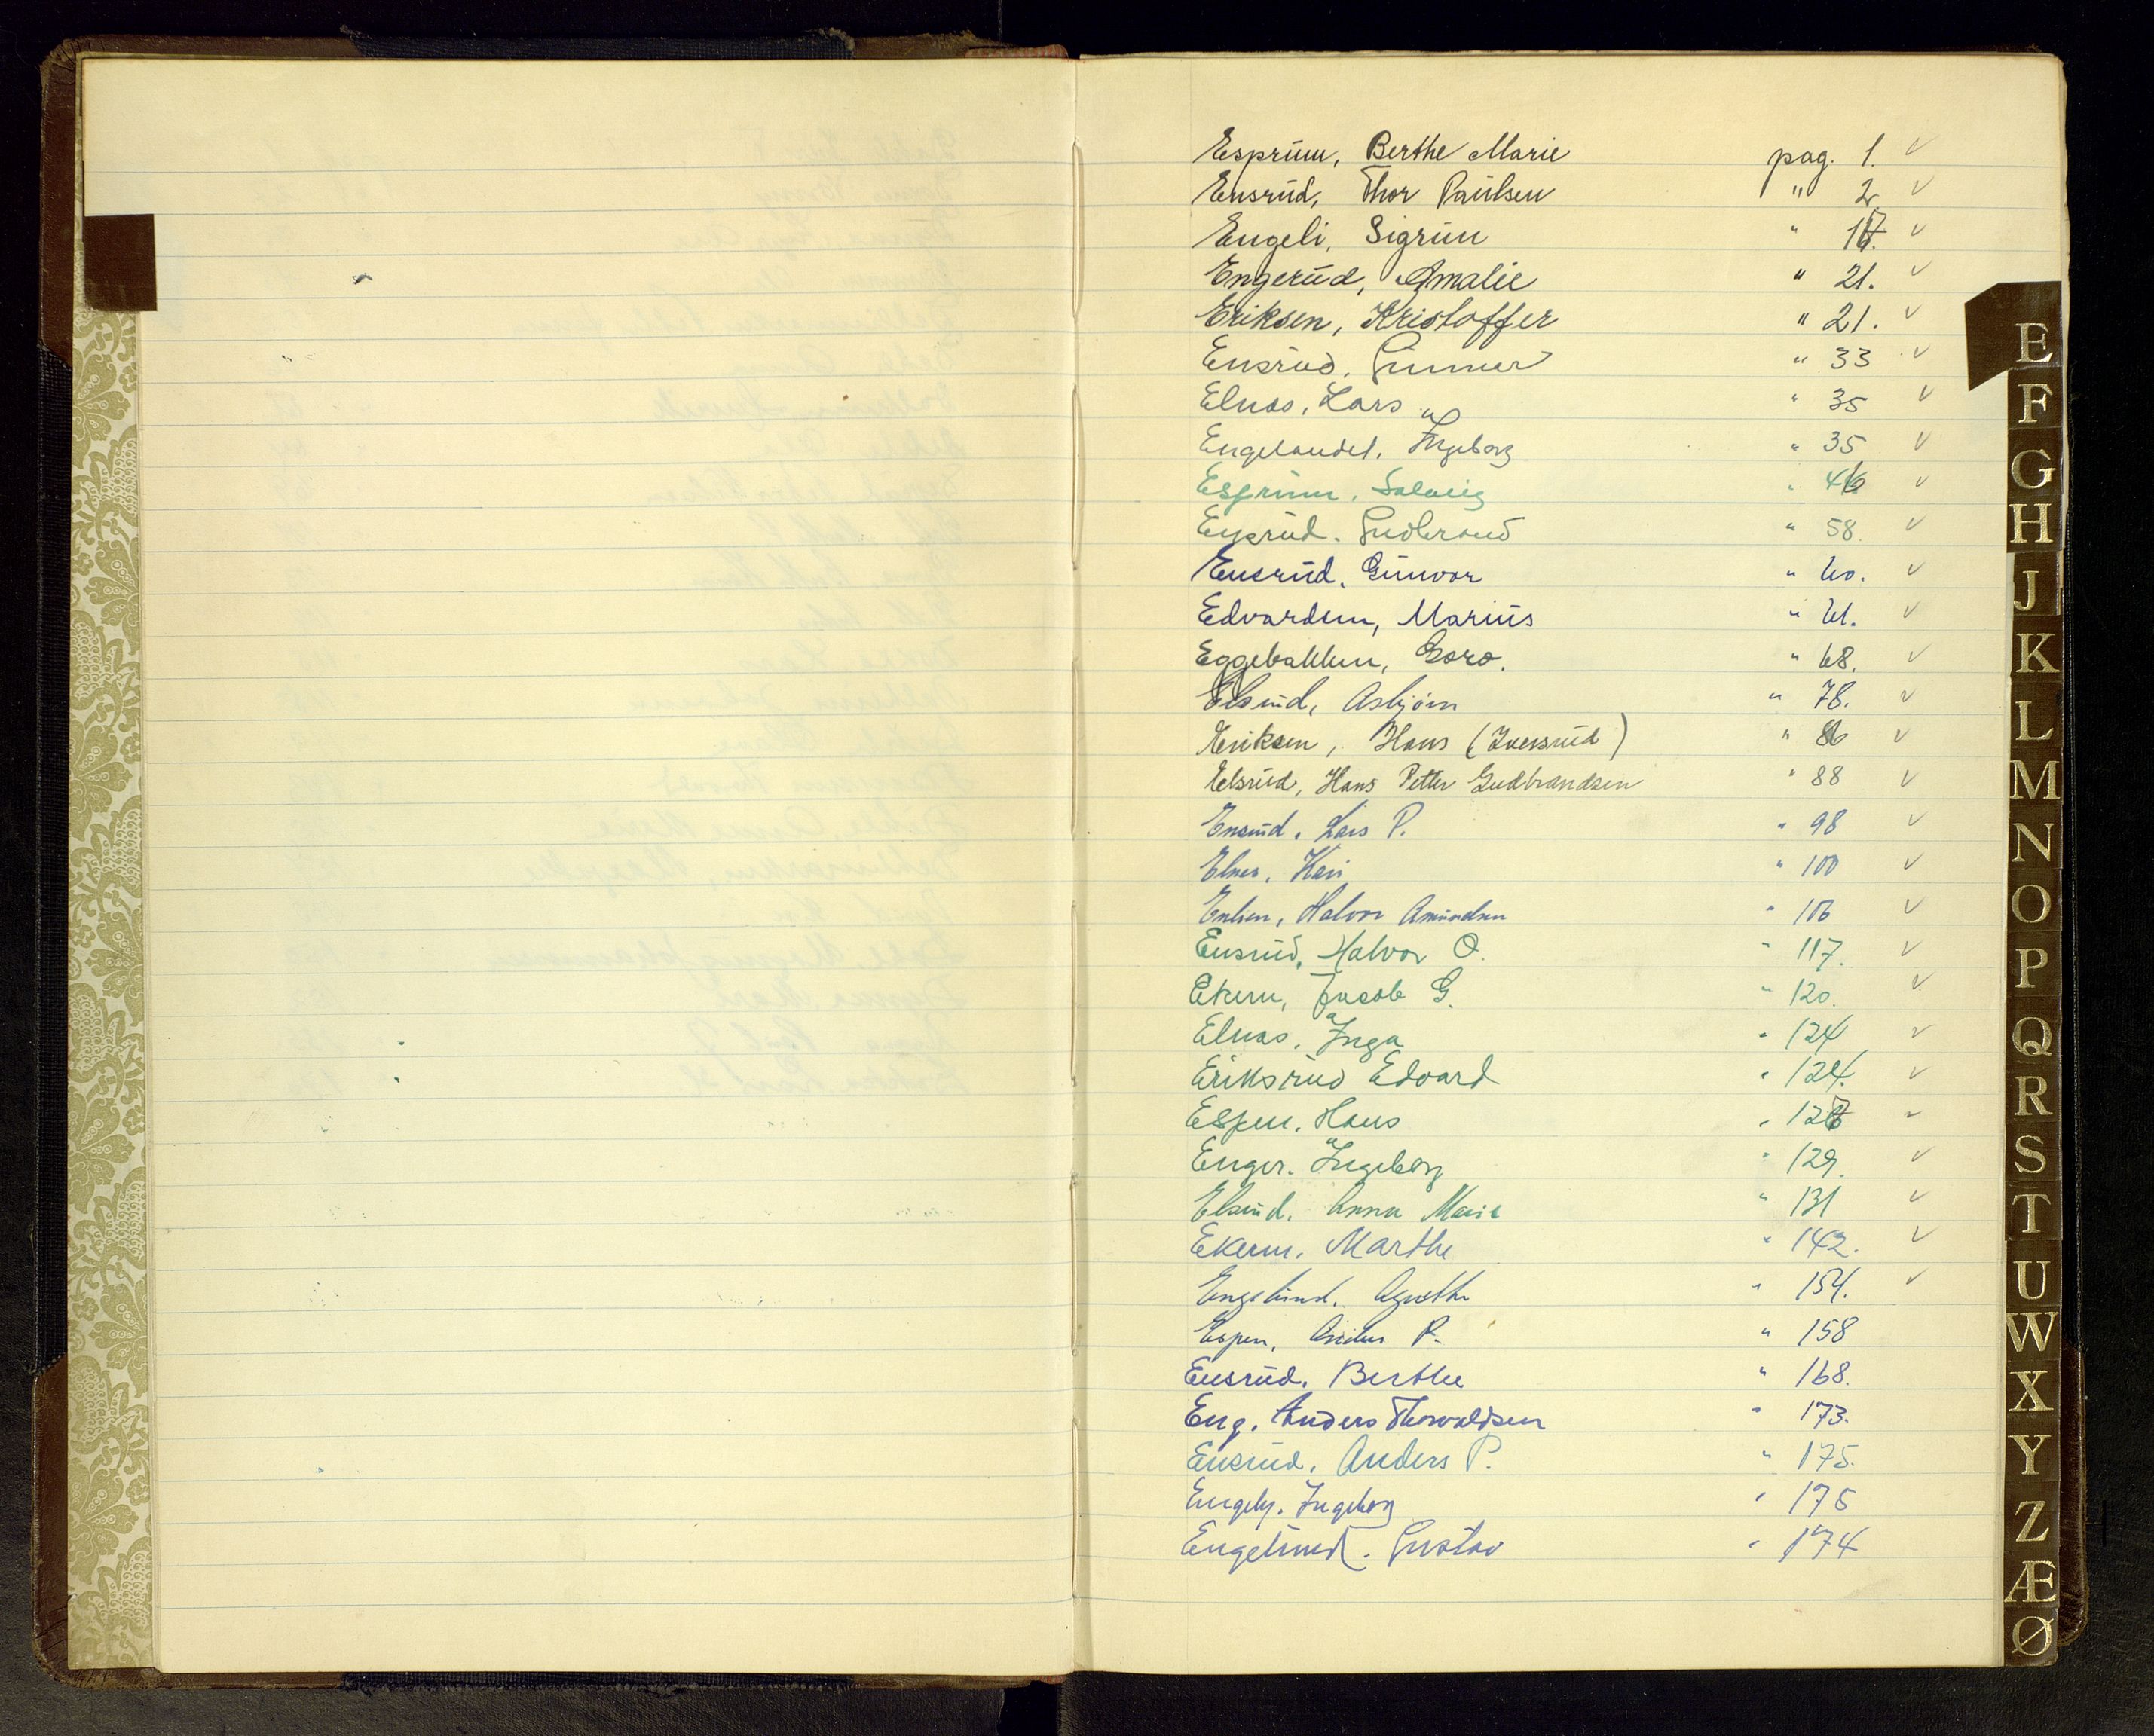 Esprum, Berthe Marie pag. 1. ✓
Ensrud, Thor Paulsen " 2 ✓
Engeli, Sigrun " 17. ✓
Engerud, Amalie " 21. ✓
Eriksen, Kristoffer " 21. ✓
Ensrud, Gunnar " 33 ✓
Elnæs, Lars " 35 ✓
Ingeborg " 35 ✓
Esprum, Solveig " 46 ✓
Gudbrand " 58. ✓
Ensrud, Gunvor " 60. ✓
Edvardsen, Marius " 61. ✓
Eggebakken, Goro. " 68. ✓
Elsrud, Asbjørn " 78. ✓
Eriksen, Hans (Iversrud) " 86 ✓
Elsrud, Hans Petter Gudbrandsen " 88 ✓
Ensrud, Lars P. " 98 ✓
Elnes, Kari " 100 ✓
Halvor Amundsen " 106 ✓
Ensrud, Halvor O. " 117. ✓
Ekern, Jacob G. " 120. ✓
Elnæs, Inga " 124 ✓
Eriksrud Edvard " 124. ✓
Espen, Hans " 127 ✓
Enger. Ingeborg " 129. ✓
Elsrud. Anna Marie " 131 ✓
Ekern, Marthe " 142. ✓
Agnethe " 154. ✓
Espen, P. " 158
Ensrud, Berthe " 168.
Eng, Anders Thorvaldsen " 173.
Ensrud, Anders P. " 175.
Engely, Ingeborg " 175
Gustav " 174
E
F
G
H
J
K
L
M
N
O
P
Q
R
S
T
U
W
X
Y
Z
Æ
Ø